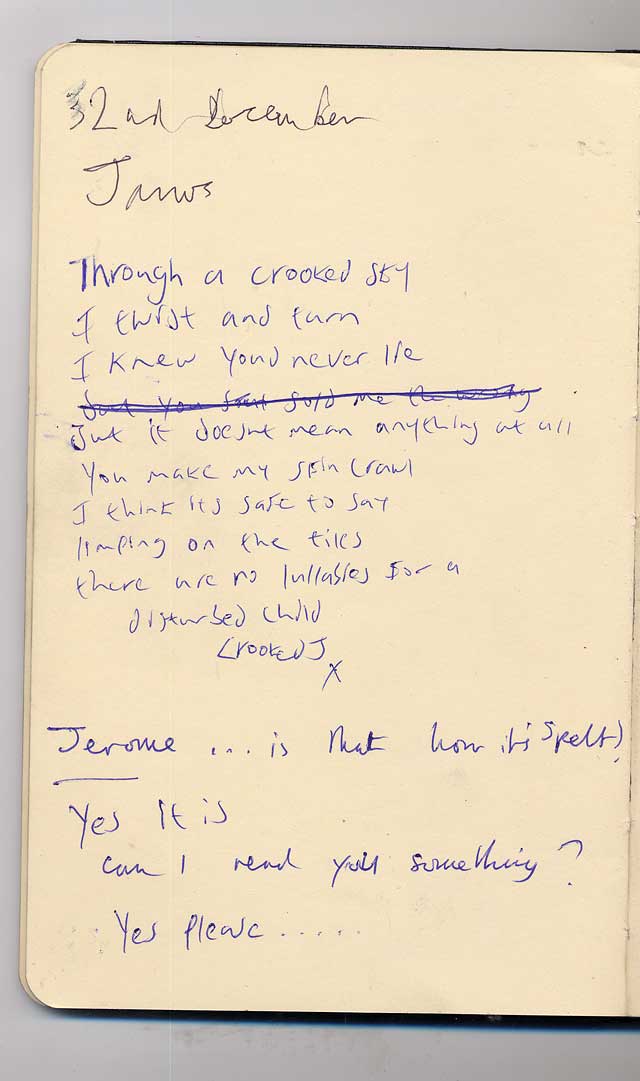 32nd December
Janus
Through a crooked sky
I twist and turn
I knew youd never lie
But you sold me the wrong
But it doesnt mean anything at all
You make my skin crawl
I think its safe to say
limping on the tiles
there are no lullabies for a
disturbed child
Crooked J
x
Jerome ... is that how it's spelt?
Yes it is
can I read you something?
Yes please .....